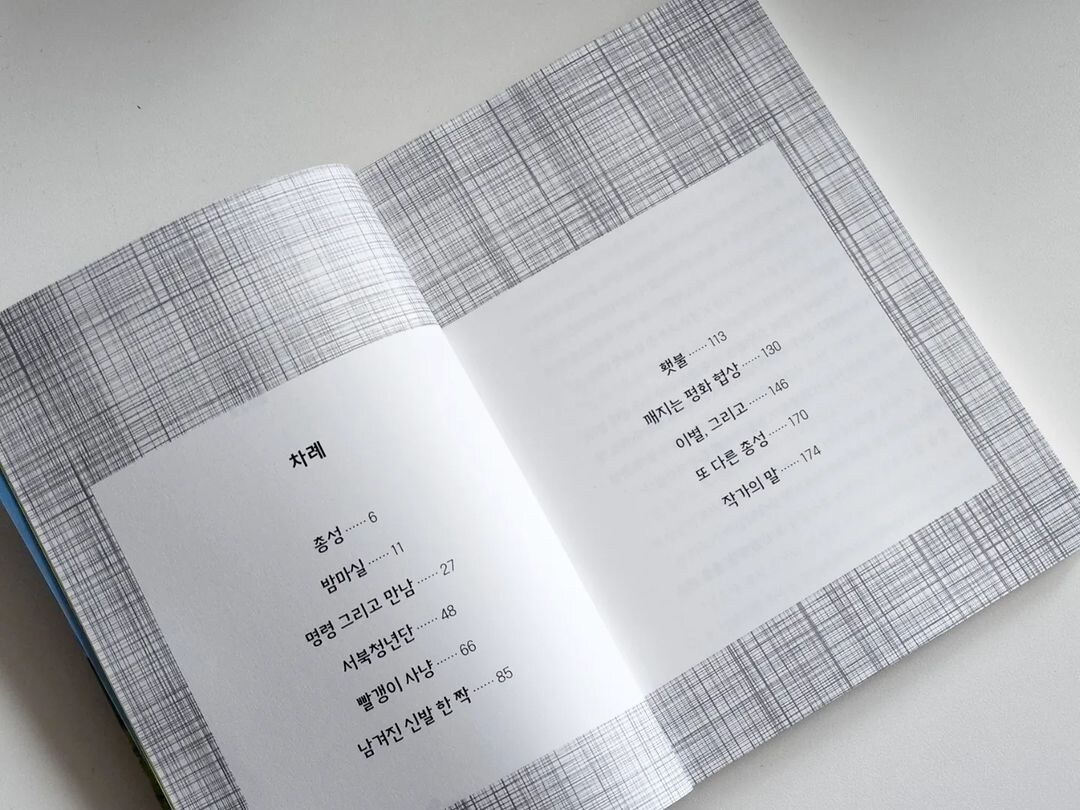 차례
총성 ······ 6
밤마실 ······ 11
명령 그리고 만남 ······ 27
서북청년단 ······ 48
빨갱이 사냥 ······ 66
남겨진 신발 한 짝 ······ 85
횃불 ······ 113
깨지는 평화 협상 ······ 130
이별, 그리고 ······ 146
또 다른 총성 ······ 170
작가의 말 ······ 174